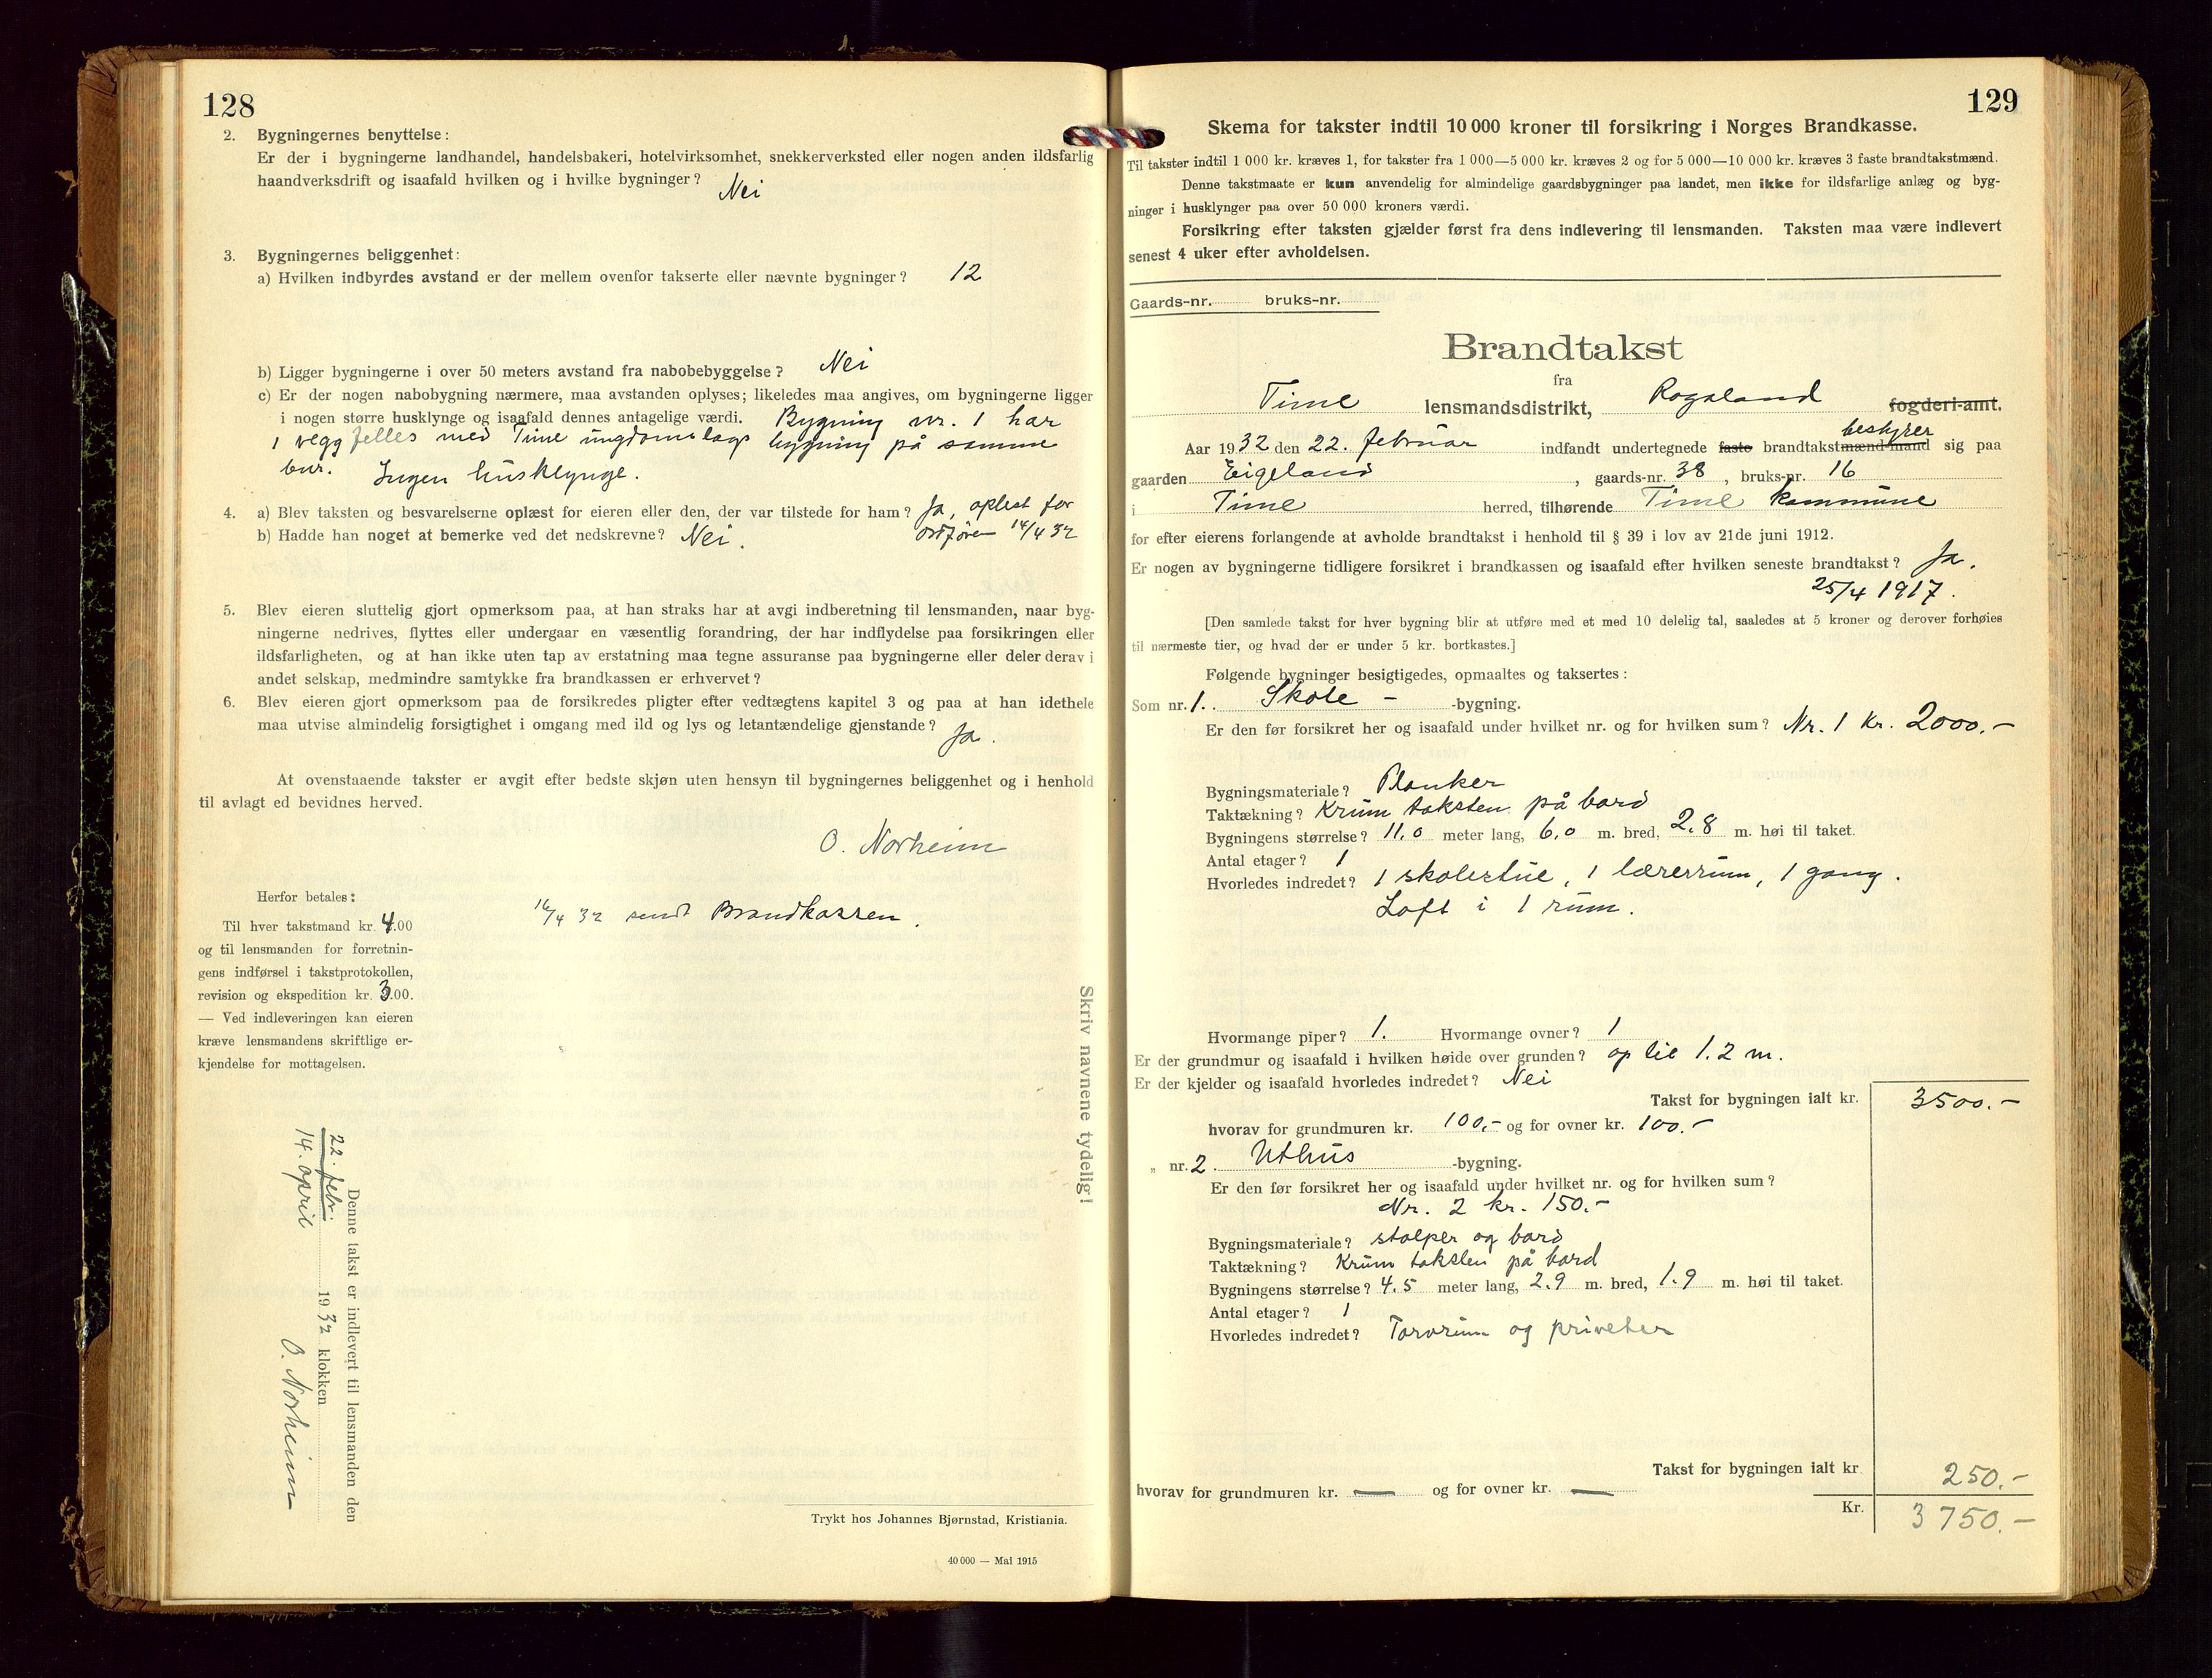 128
2. Bygningernes benyttelse:
Er der i bygningerne landhandel, handelsbakeri, hotelvirksomhet, snekkerverksted eller nogen anden ildsfarlig
haandverksdrift og isaafald hvilken og i hvilke bygninger? Nei
3. Bygningernes beliggenhet:
a) Hvilken indbyrdes avstand er der mellem ovenfor takserte eller nævnte bygninger? 12
b) Ligger bygningerne i over 50 meters avstand fra nabobebyggelse? Nei
c) Er der nogen nabobygning nærmere, maa avstanden oplyses; likeledes maa angives, om bygningerne ligger
i nogen større husklynge og isaafald dennes antagelige værdi. Bygning nr. 1 har
1 vegg felles med Time ungdomslags bygning på samme
bur. Ingen husklynge.
4. a) Blev taksten og besvarelserne oplæst for eieren eller den, der var tilstede for ham? Ja, oplest for
b) Hadde han noget at bemerke ved det nedskrevne? Nei. ordføren 14/4 32
5. Blev eieren sluttelig gjort opmerksom paa, at han straks har at avgi indberetning til lensmanden, naar byg-
ningerne nedrives, flyttes eller undergaar en væsentlig forandring, der har indflydelse paa forsikringen eller
ildsfarligheten, og at han ikke uten tap av erstatning maa tegne assuranse paa bygningerne eller deler derav i
andet selskap, medmindre samtykke fra brandkassen er erhvervet?
6. Blev eieren gjort opmerksom paa de forsikredes pligter efter vedtægtens kapitel 3 og paa at han idethele
maa utvise almindelig forsigtighet i omgang med ild og lys og letantændelige gjenstande? Ja.
At ovenstaaende takster er avgit efter bedste skjøn uten hensyn til bygningernes beliggenhet og i henhold
til avlagt ed bevidnes herved.
O. Norheim
Herfor betales:
Til hver takstmand kr. 4.00
og til lensmanden for forretnin-
gens indførsel i takstprotokollen,
revision og ekspedition kr. 3.00.
— Ved indleveringen kan eieren
kræve lensmandens skriftlige er-
kjendelse for mottagelsen.
16/4 32 sendt Brandkassen.
Skriv navnene tydelig!
Denne takst er indlevert til lensmanden den
22. febr.
14. april 1932 klokken
O. Norheim
Trykt hos Johannes Bjørnstad, Kristiania.
40 000 — Mai 1915
129
Skema for takster indtil 10 000 kroner til forsikring i Norges Brandkasse.
Til takster indtil 1 000 kr. kræves 1, for takster fra 1 000—5 000 kr. kræves 2 og for 5 000—10 000 kr. kræves 3 faste brandtakstmænd.
Denne takstmaate er kun anvendelig for almindelige gaardsbygninger paa landet, men ikke for ildsfarlige anlæg og byg-
ninger i husklynger paa over 50 000 kroners værdi.
Forsikring efter taksten gjælder først fra dens indlevering til lensmanden. Taksten maa være indlevert
senest 4 uker efter avholdelsen.
Gaards-nr. bruks-nr.
Brandtakst
fra
Time lensmandsdistrikt, Rogaland fogderi-amt.
bestyrer
Aar 1932 den 22. februar indfandt undertegnede faste brandtakstmænd-mand sig paa
gaarden Eigeland, gaards-nr. 38, bruks-nr. 16
i Time herred, tilhørende Time kommune
for efter eierens forlangende at avholde brandtakst i henhold til § 39 i lov av 21de juni 1912.
Er nogen av bygningerne tidligere forsikret i brandkassen og isaafald efter hvilken seneste brandtakst? Ja.
25/4 1917.
[Den samlede takst for hver bygning blir at utføre med et med 10 delelig tal, saaledes at 5 kroner og derover forhøies
til nærmeste tier, og hvad der er under 5 kr. bortkastes.]
Følgende bygninger besigtigedes, opmaaltes og taksertes:
Som nr. 1. Skole - -bygning.
Er den før forsikret her og isaafald under hvilket nr. og for hvilken sum? Nr. 1 Kr. 2000.-
Bygningsmateriale? Planker
Taktækning? Krum taksten på bord
Bygningens størrelse? 11.0 meter lang, 6.0 m. bred, 2.8 m. høi til taket.
Antal etager? 1
Hvorledes indredet? 1 skolestue, 1 lærerrum, 1 gang.
Loft i 1 rum.
Hvormange piper? 1. Hvormange ovner? 1
Er der grundmur og isaafald i hvilken høide over grunden? op til 1.2 m.
Er der kjelder og isaafald hvorledes indredet? Nei
Takst for bygningen ialt kr. 3500.-
hvorav for grundmuren kr. 100,- og for ovner kr. 100.-
„ nr. 2. Uthus -bygning.
Er den før forsikret her og isaafald under hvilket nr. og for hvilken sum?
Nr. 2 kr. 150.-
Bygningsmateriale? stolper og bord
Taktækning? Krum taksten på bord
Bygningens størrelse? 4.5 meter lang, 2.9 m. bred, 1.9 m. høi til taket.
Antal etager? 1
Hvorledes indredet? Torvrum og priveter
Takst for bygningen ialt kr 250.-
hvorav for grundmuren kr. — og for ovner kr. —
Kr. 3750.-